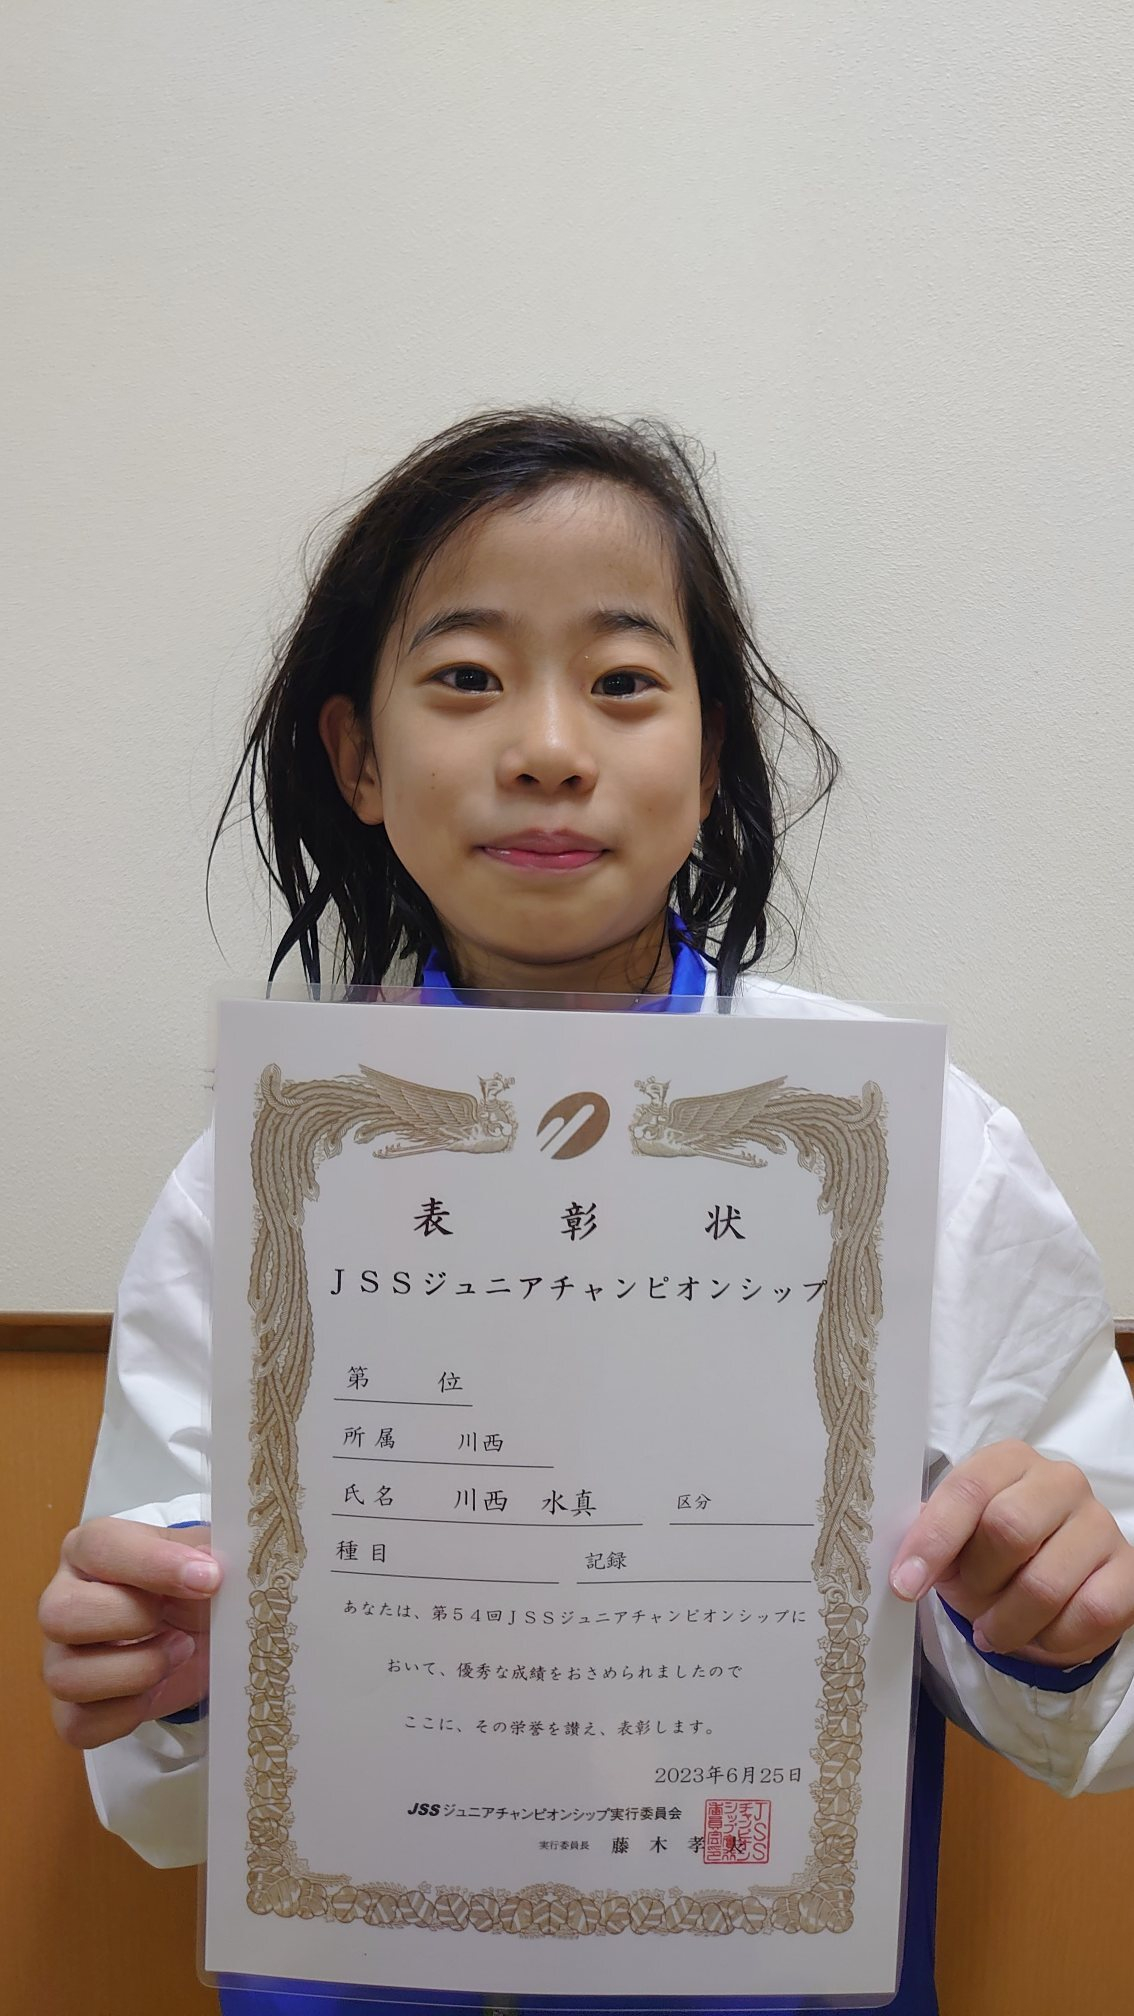 表彰状
JSSジュニアチャンピオンシップ
第　位
所属　川西
氏名　川西　水真　区分
種目　記録
あなたは、第54回JSSジュニアチャンピオンシップに
おいて、優秀な成績をおさめられましたので
ここに、その栄誉を讃え、表彰します。
2023年6月25日
JSSジュニアチャンピオンシップ実行委員会
実行委員長　藤木孝